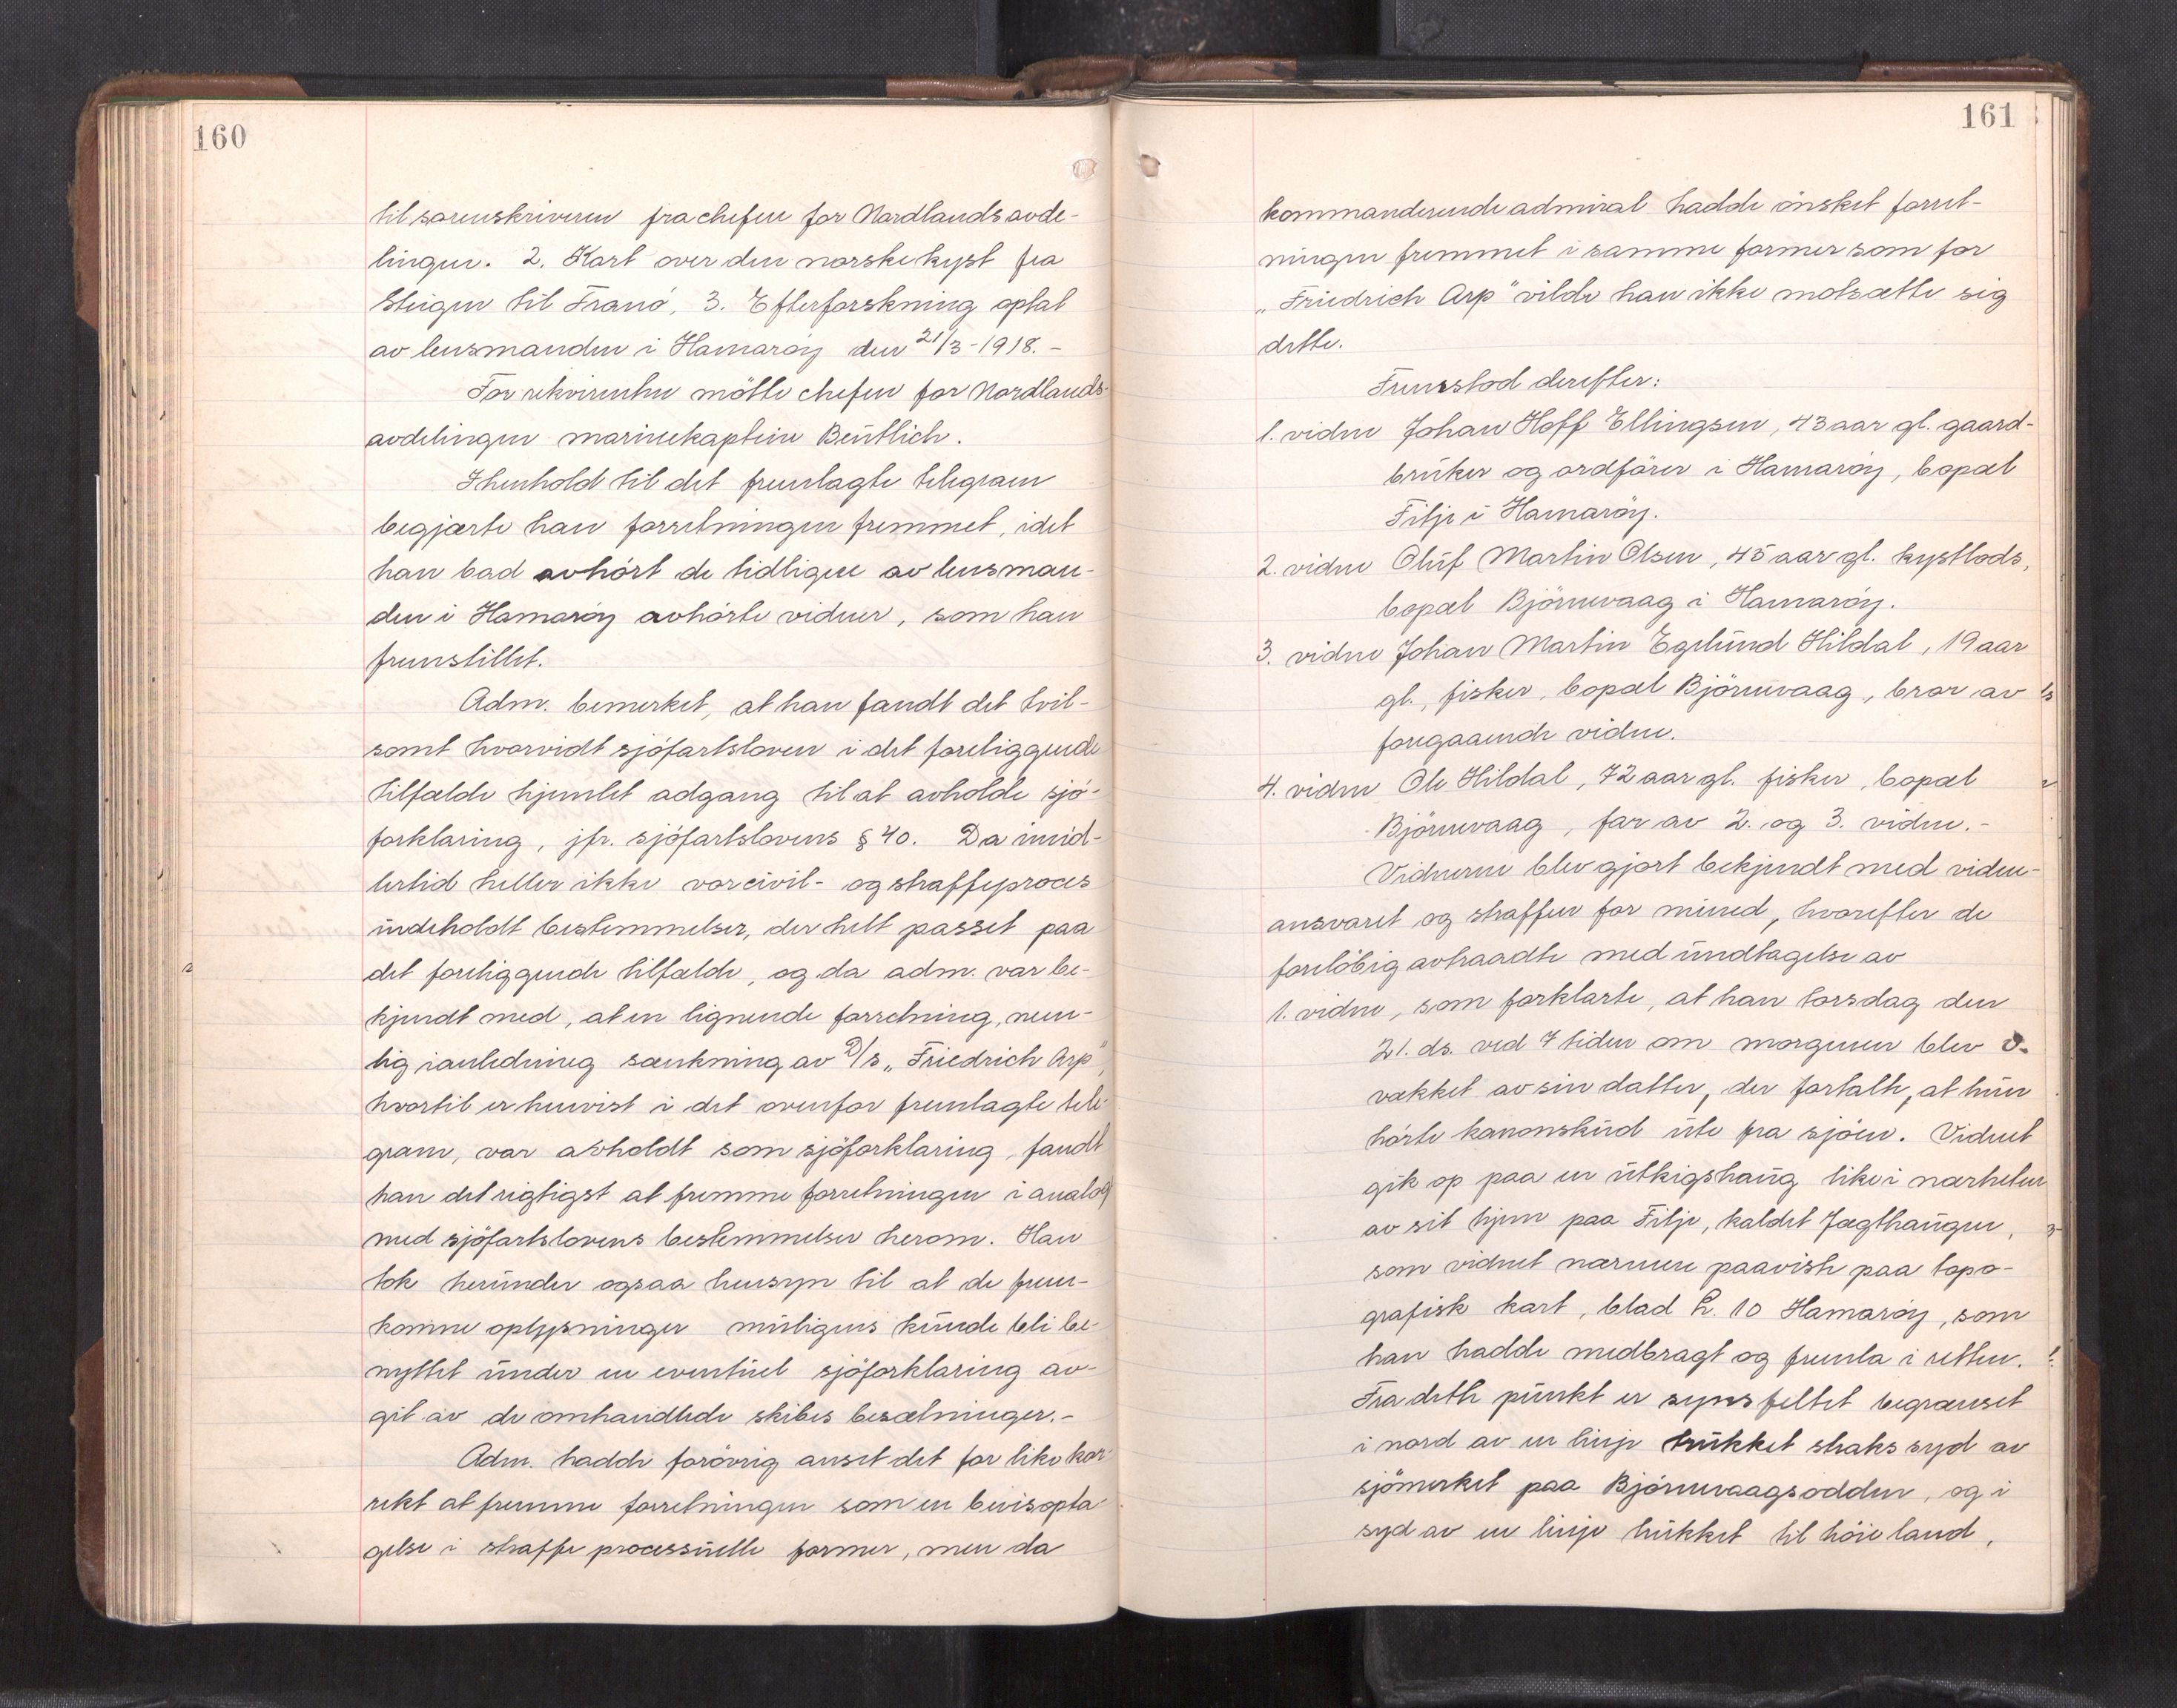 160
til sorenskriveren fra chefen for Nordlands avde-
lingen. 2. Kart over den norske kyst fra
Steigen til Tranö, 3. Efterforskning optat
av lensmanden i Hamaröy den 21/3-1918.-
For rekvirenten mötte chefen for Nordlands-
avdelingen marinekaptein Beutlich.
I henhold til det fremlagte telegram
begjærte han forretningen fremmet, idet
han bad avhört de tidligere av lensman-
den i Hamaröy avhörte vidner, som han
fremstillet.
Adm. bemerket, at han fandt det tvil-
somt hvorvidt sjöfartsloven i det foreliggende
tilfælde hjemlet adgang til at avholde sjö-
forklaring, jfr. sjöfartslovens § 40. Da imid-
lertid heller ikke vor civil- og straffeproces
indeholdt bestemmelser, der helt passet paa
det foreliggende tilfælde, og da adm. var be-
kjendt med, at en lignende forretning, nem-
lig i anledning sænkning av D/s „Friedrich Arp",
hvortil er henvist i det ovenfor fremlagte tele-
gram, var avholdt som sjöforklaring, fandt
han det rigtigst at fremme forretningen i analogi
med sjöfartslovens bestemmelser herom. Han
tok herunder ogsaa hensyn til at de frem-
komne oplysninger muligens kunde bli be-
nyttet under en eventuel sjöforklaring av-
git av de omhandlede skibes besætninger.-
Adm. hadde forövrig anset det for like kor-
rekt at fremme forretningen som en bevisopta-
gelse i straffe processuelle former, men da
161
kommanderende admiral hadde önsket forret-
ningen fremmet i samme former som for
„Friedrich Arp" vilde han ikke motsætte sig
dette.
Fremstod derefter:
1. vidne Johan Hoff Ellingsen, 43 aar gl. gaard-
bruker og ordförer i Hamaröy, bopæl
Tilje i Hamaröy.
2. vidne Oluf Martin Olsen, 45 aar gl. kystlods,
bopæl Björnevaag i Hamaröy.
3. vidne Johan Martin Egelund Hildal, 19 aar
gl., fisker, bopæl Björnevaag, bror av
foregaaende vidne.
4. vidne Ole Hildal, 72 aar gl. fisker, bopæl
Björnevaag, far av 2. og 3. vidne.-
Vidnerne blev gjort bekjendt med vidne-
ansvaret og straffen for mened, hvorefter de
forelöbig avtraadte med undtagelse av
1. vidne, som forklarte, at han torsdag den
21. ds. ved 7 tiden om morgenen blev
vækket av sin datter, der fortalte, at hun
hörte kanonskud ute fra sjöen. Vidnet
gik op paa en utkigshaug like i nærheten
av sit hjem paa Tilje, kaldet Jægthaugen,
som vidnet nærmere paaviste paa topo-
grafisk kart, blad L. 10 Hamaröy, som
han hadde medbragt og fremla i retten.
Fra dette punkt er synsfeltet begrænset
i nord av en linje trukket straks syd av
sjömerket paa Björnevaagsodden, og i
syd av en linje trukket til höie land,